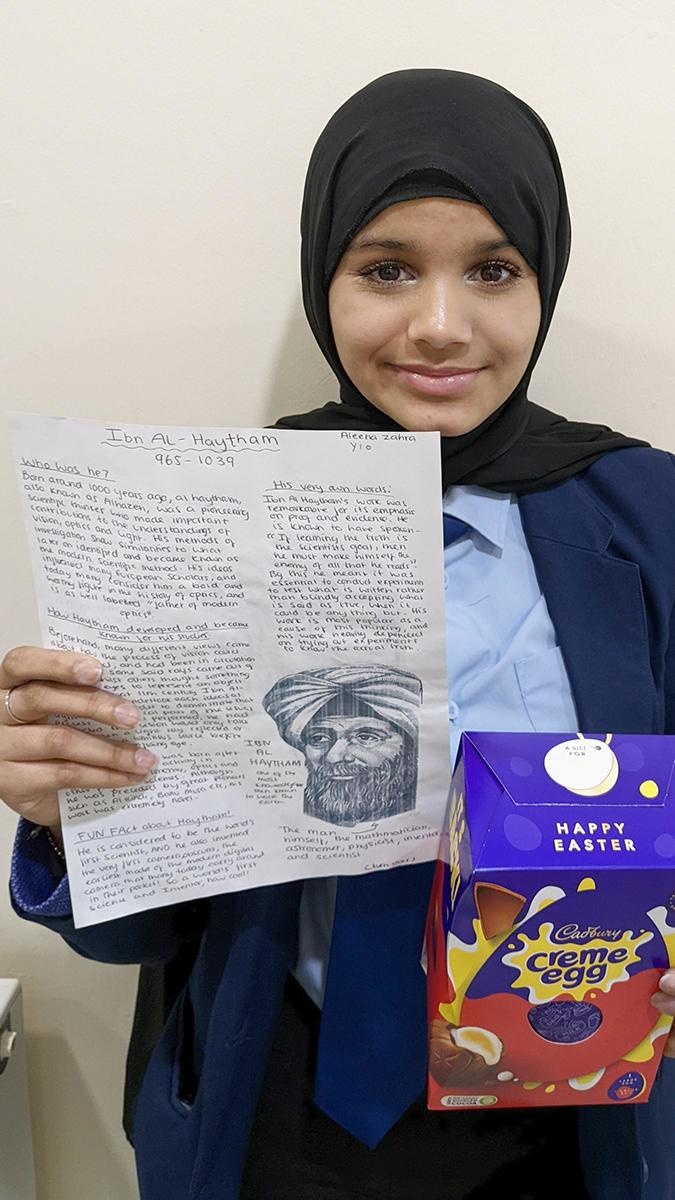 Ibn AL-Haytham
965-1039
Aleena zahra
Y10
Who was he?
Born around 1000 years ago, al haytham,
also known as Alhazen, was a pioneering
scientific thinker who made important
contributions to the understandings of
vision, optics and light. His methods of
investigation show similarities to what
later on identified and became known as
the modern scientific method. His ideas
influenced many European scholars, and
today many consider him a
figure in the history of optics, and
is as well labelled "father of modern
optics"
How Haytham developed and became
known for his studies
Beforehand, many different views came
about the process of vision
and had been in circulation
some said rays came out of
others thought something
eyes to represent an object.
11th century Ibn AL-
each idea
to demonstrate that
part of the
performed, he
vision would only take
light ray reflected or
eye.
was born after
activity in
optics and
Although
he was preceded by great
such as Al Kindi, Banu Musa etc, his
work was extremely noted.
FUN FAct about Haytham!
He is considered to be the world's
first scientist, AND he also invented
the very first camera obscura, the
earliest mode of the modern digital
camera man many today carry around
in their pocket! So a world's first
science and inventor, how cool!
His very own words:
Ibn Al Haytham's work was
remarkable for its emphasis
on proof and evidence. He
is known to have spoken-
"If learning the truth is
the scientist's goal, then
he must make himself the
enemy of all that he reads"
By this he meant it was
essential to conduct experiments
to test what is written rather
than blindly accepting what
is said as true, when it
could be anything but. His
work is most popular as a
cause of this thinking, and
his work heavily depended
on trying out experiments
to know the actual truth.
IBN
AL
HAYTHAM
one of the
most
The man, the mathmatician,
himself, the
astronomer, physicist, inventor
and scientist
A GIFT
FOR
HAPPY
EASTER
Cadbury
creme
egg
COCOA